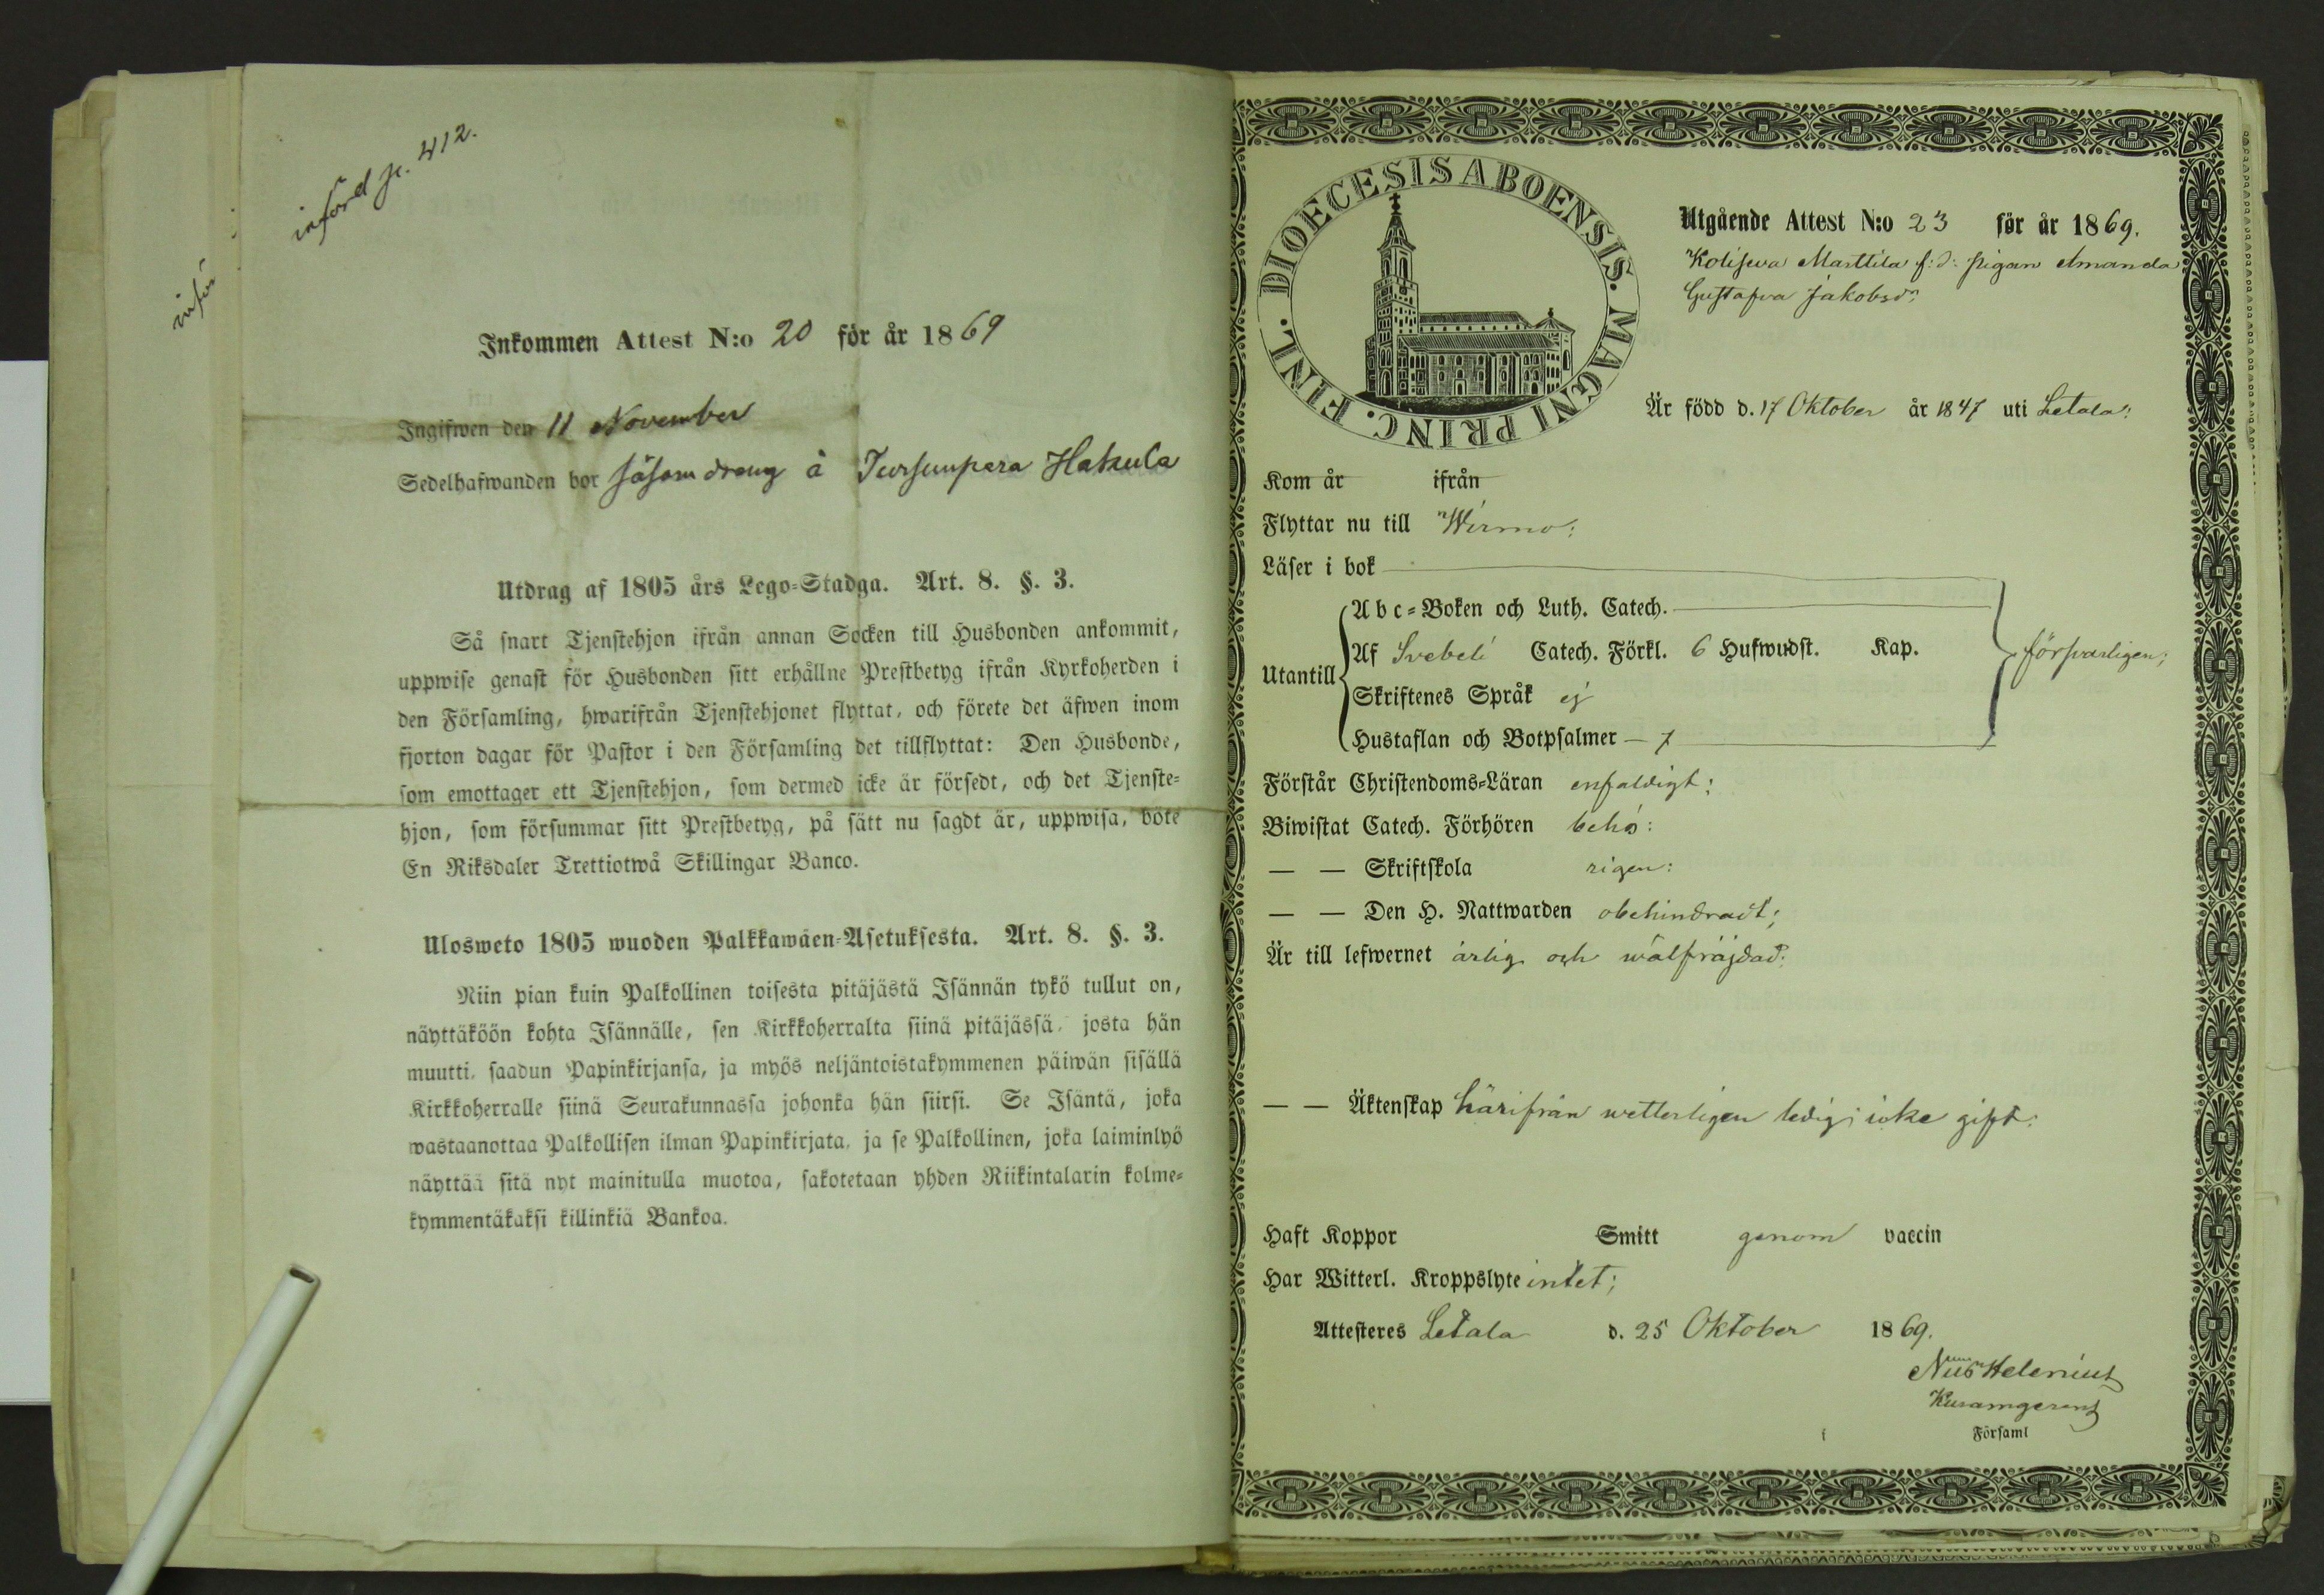 införd p. 412.
inför
Inkommen Attest N:o 20 för år 1869
Ingifwen den 11 November
Sedelhafwanden bor såsom dräng å Tursunpera Hakula
Utdrag af 1805 års Lego-Stadga. Art. 8. §. 3.
Så snart Tjenstehjon ifrån annan Socken till Husbonden ankommit,
uppwise genast för Husbonden sitt erhållne Prestbetyg ifrån Kyrkoherden i
den Församling, hwarifrån Tjenstehjonet flyttat, och förete det äfwen inom
fjorton dagar för Pastor i den Församling det tillflyttat: Den Husbonde,
som emottager ett Tjenstehjon, som dermed icke är försedt, och det Tjenste-
hjon, som försummar sitt Prestbetyg, på sätt nu sagdt är, uppwisa, böte
En Riksdaler Trettiotwå Skillingar Banco.
Ulosweto 1805 wuoden Palkkawäen-Asetuksesta. Art. 8. §. 3.
Niin pian kuin Palkollinen toisesta pitäjästä Isännän tykö tullut on,
näyttäköön kohta Isännälle, sen Kirkkoherralta siinä pitäjässä, josta hän
muutti, saadun Papinkirjansa, ja myös neljäntoistakymmenen päiwän sisällä
Kirkkoherralle siinä Seurakunnassa johonka hän siirsi. Se Isäntä, joka
wastaanottaa Palkollisen ilman Papinkirjata, ja se Palkollinen, joka laiminlyö
näyttää sitä nyt mainitulla muotoa, sakotetaan yhden Riikintalarin kolme-
kymmentäkaksi killinkiä Bankoa.
DIOECESIS ABOENSIS. MAGNI PRINC. FINL.
Utgående Attest N:o 23 för år 1869.
Kolsjeva Marttila f:d: pigan Amanda
Gustafva Jakobsdr
Är född d. 17 Oktober år 1847 uti Letala:
Kom år ifrån
Flyttar nu till Wirmo:
Läser i bok
Abc-Boken och Luth. Catech.
Utantill Af Svebeli Catech. Förkl. 6 Hufwudst. Kap. försvarligen;
Skriftenes Språk ej
Hustaflan och Botpsalmer — 7
Förstår Christendoms-Läran enfaldigt:
Biwistat Catech. Förhören behö:
— — Skriftskola rigen:
— — Den H. Nattwarden obehindradt;
Är till lefwernet ärlig och wälfräjdad:
— — Äktenskap härifrån wetterligen ledig; icke gift:
Haft Koppor Smitt genom vaccin
Har Witterl. Kroppslyte intet;
Attesteres Letala d. 25 Oktober 1869.
Helenius
Församl